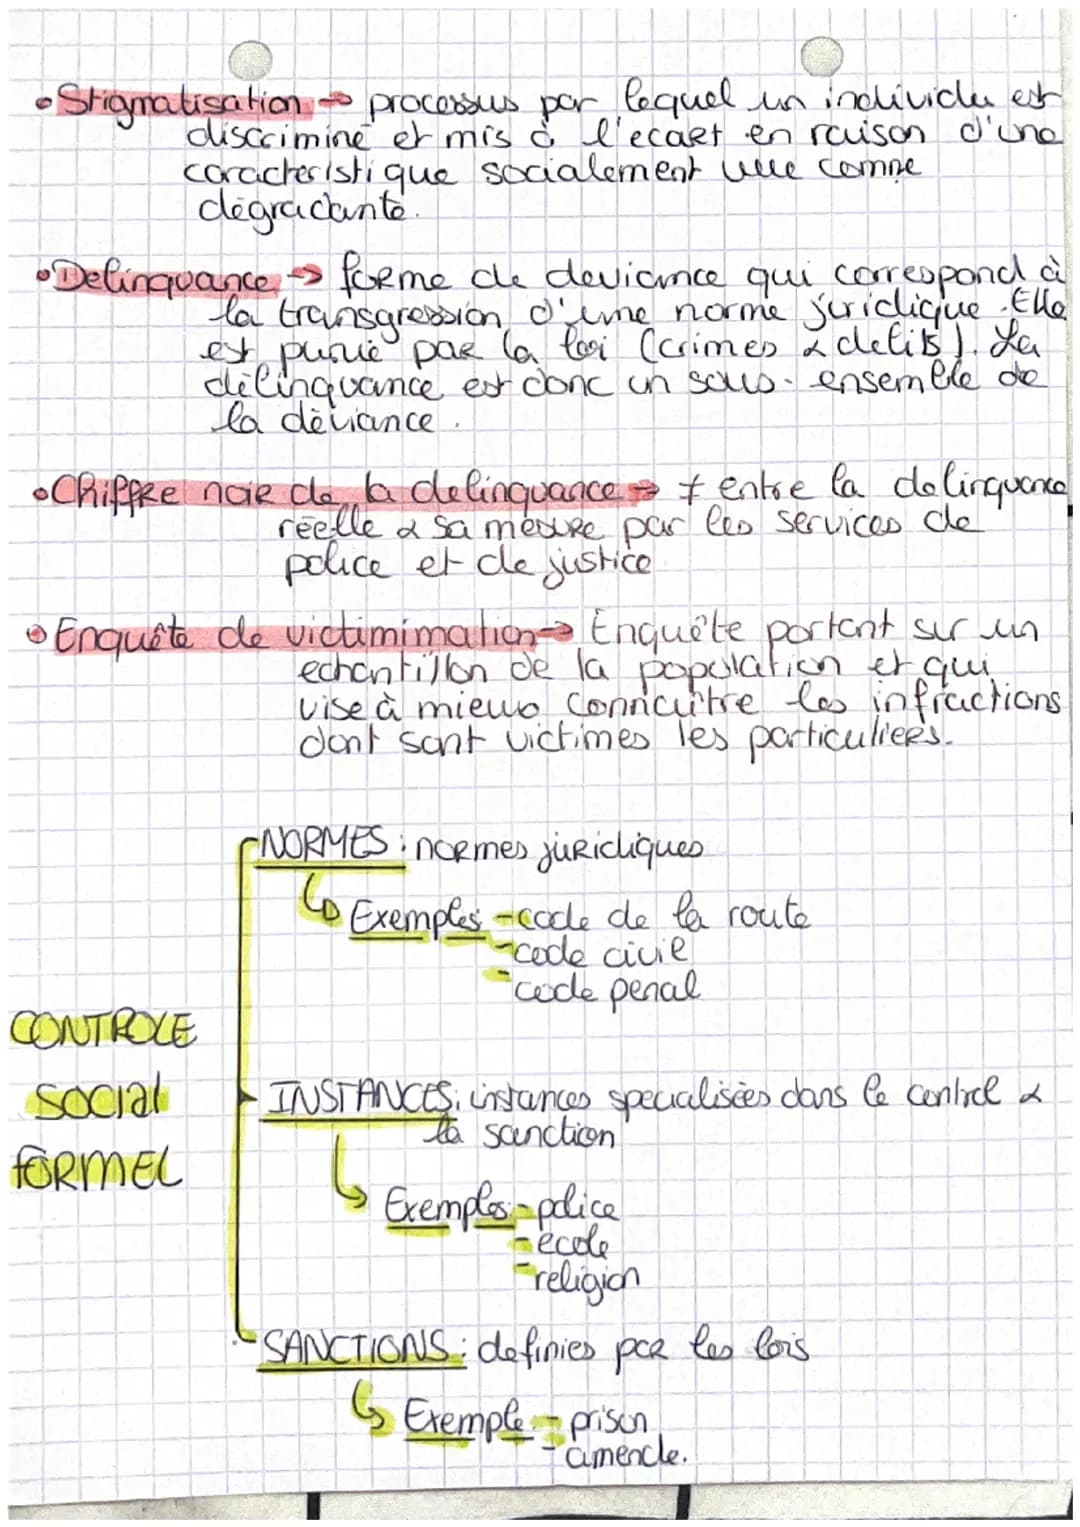 • Stigmatisation → processus par lequel un individu est
discriminé et mis à l'ecart en raison d'une
caractéristique socialement vue comme
dégradante.
• Delinquance → forme de deviance qui correspond à
la transgression d'une norme juridique. Elle
est punie par la loi (crimes & delits). La
délinquance est donc un sous-ensemble de
la déviance.
• Chiffre noir de la delinquance → ≠ entre la delinquance
réelle & sa mesure par les services de
police et de justice
• Enquête de victimimation → Enquête portant sur un
echantillon de la population et qui
vise à mieux connaître les infractions
dont sont victimes les particuliers.
NORMES : normes juridiques
↳ Exemples - code de la route
- code civil
- code penal
CONTROLE
SOCIAL
FORMEL
INSTANCES : instances specialisées dans le control &
la sanction
↳ Exemples - police
- ecole
- religion
SANCTIONS : definies par les lois
↳ Exemple - prison
- amende.